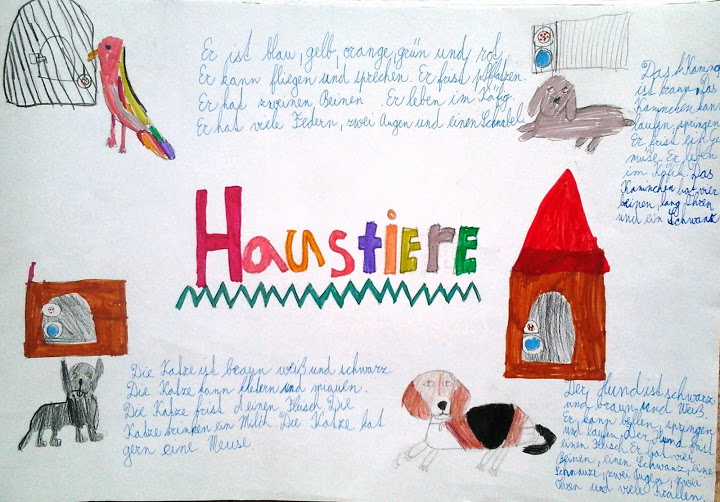 Er ist blau, gelb, orange, grün und rot.
Er kann fliegen und sprechen. Er frist pflatzen.
Er hat zweinen Beinen. Er leben im Käfig.
Er hat viele Federn, zwei Augen und einen Schnabel.
Das Kaninc
ist braun. Das
Kaninchen kan
laufen, springen
Er friss ein Ge
müse. Er leben
im Käfich. Das
Kaninchen hat vier
beinen, lang Ohren
und ein Schwanz
Haustiere
Die Katze ist braun weiß und schwarz
Die Katze kann kletern und miauen.
Die Katze frist einen Fleisch. Die
Katze trinken ein Milch. Die Katze hat
gern eine Meuse
Der Hund ist schwarz
und braun und weiß.
Er kann bellen, springen
und laufen. der Hund frist
einen Fleisch. Er hat vier
Beinen, einen Schwanz, eine
Schnauze, zwei Augen, zwei
Ohren und viele Krallen.